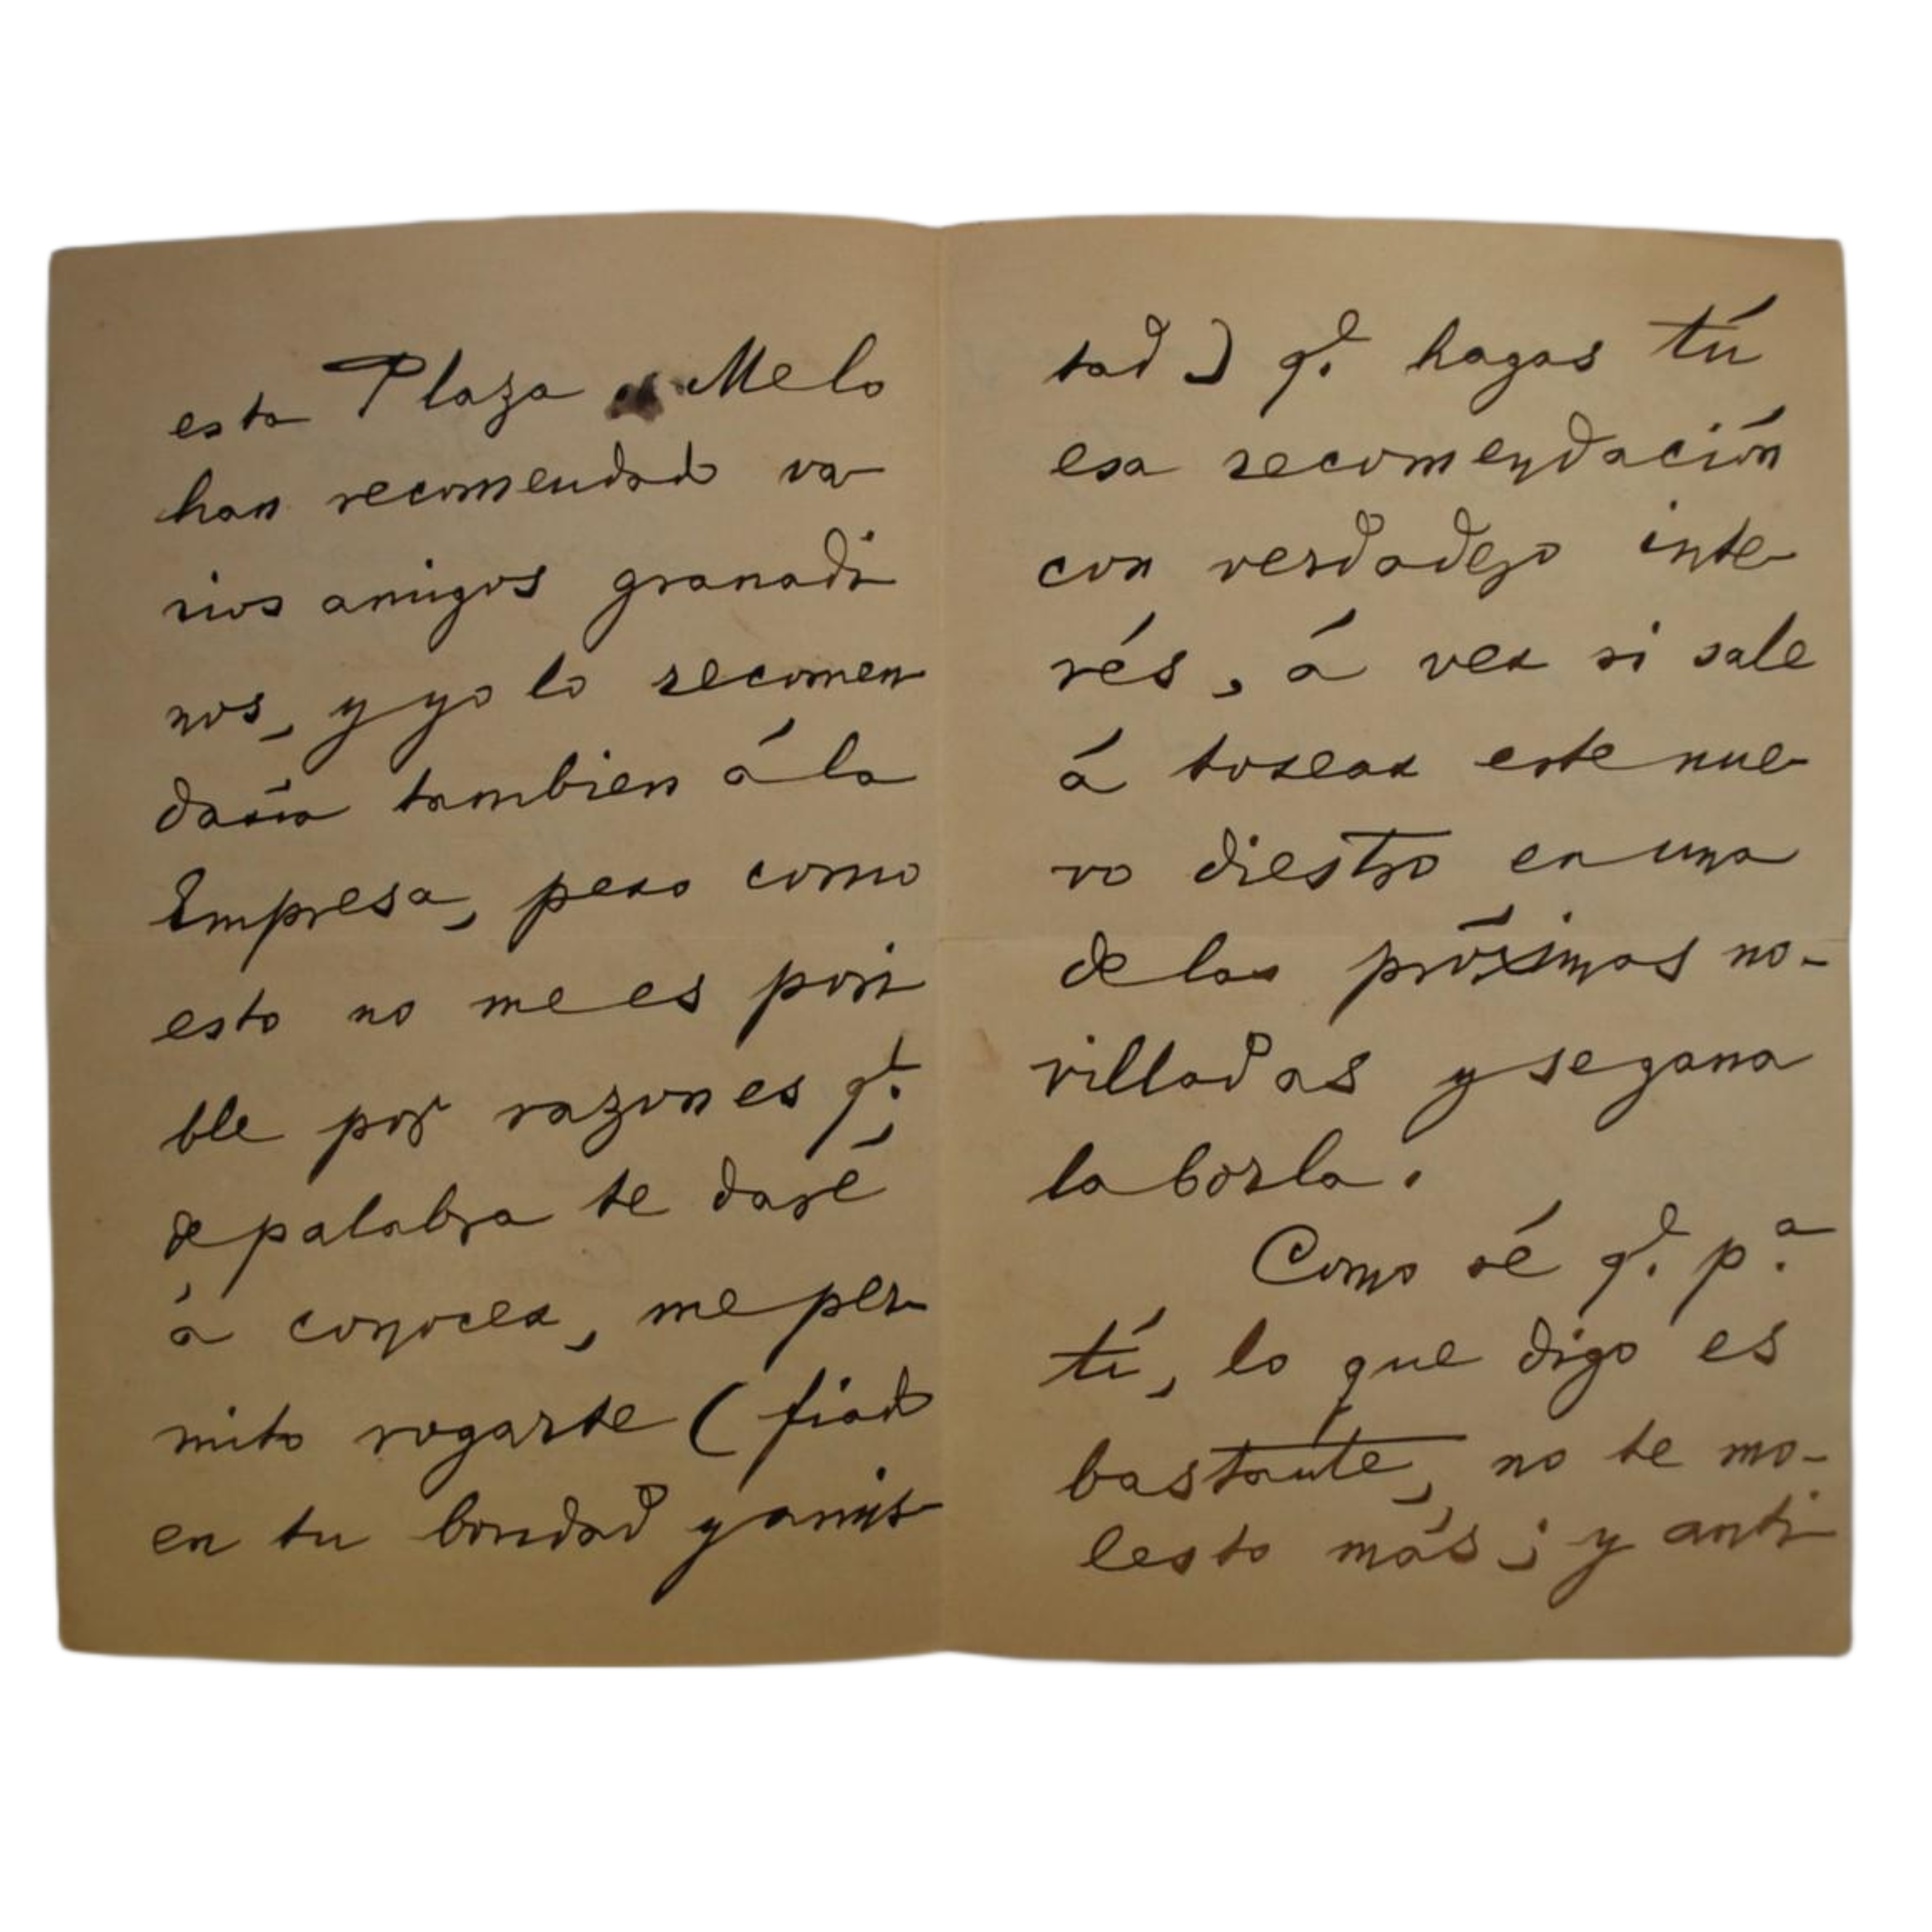 esta Plaza. Me lo
han recomendado va
rios amigos granadi
nos, y yo lo recomen
daría tambien á la
Empresa, pero como
esto no me es posi
ble por razones q.e
de palabra te daré
á conocer, me per
mito rogarte (fiado
en tu bondad y amis
tad) q.e hagas tú
esa recomendación
con verdadero inte
rés, á ver si sale
á torear este nue
vo diestro en una
de las próximas no-
villadas y se gana
la borla.
Como sé q.e p.a
tí, lo que digo es
bastante, no te mo-
lesto más; y anti